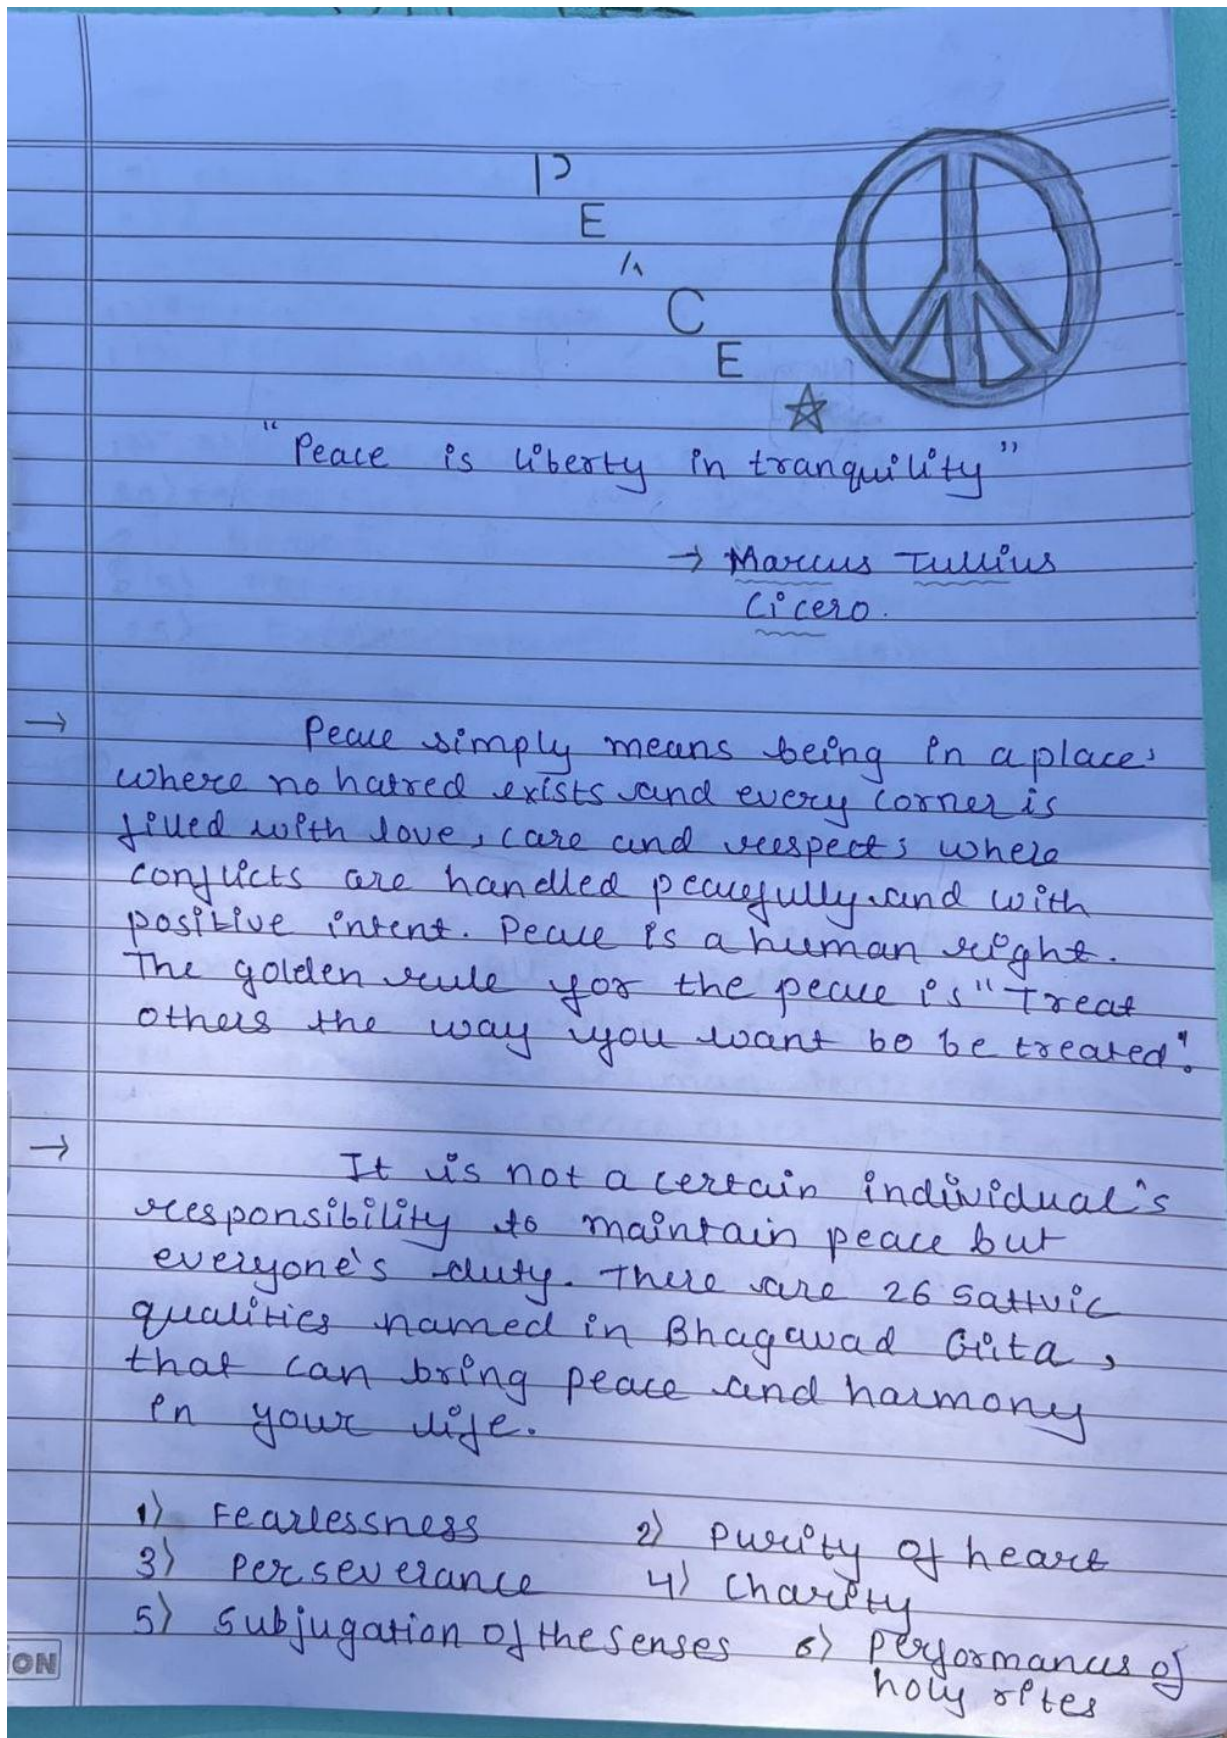 P
E
A
C
E
"Peace is liberty in tranquility"
→ Marcus Tullius
Cicero.
→ Peace simply means being in a place,
where no hatred exists and every corner is
filled with love, care and respect; where
conflicts are handled peacefully and with
positive intent. Peace is a human right.
The golden rule for the peace is "Treat
others the way you want to be treated".
→ It is not a certain individual's
responsibility to maintain peace but
everyone's duty. There are 26 Sattvic
qualities named in Bhagavad Gita,
that can bring peace and harmony
in your life.
1) Fearlessness 2) Purity of heart
3) Perseverance 4) Charity
5) Subjugation of the senses 6) Performances of
holy rites
ION